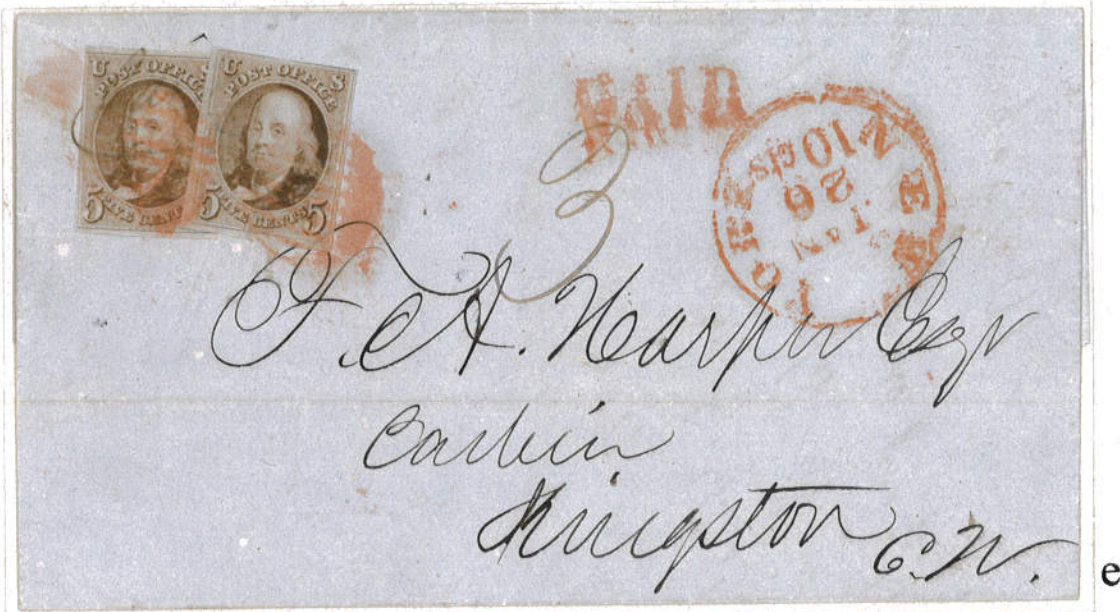 U S
POST OFFICE
5 FIVE CENTS
U S
POST OFFICE
5 FIVE CENTS 5
PAID
NEW YORK
10 cts
26
JAN
3
F. A. Harper Esqr
Cashier
Kingston C.W.
e